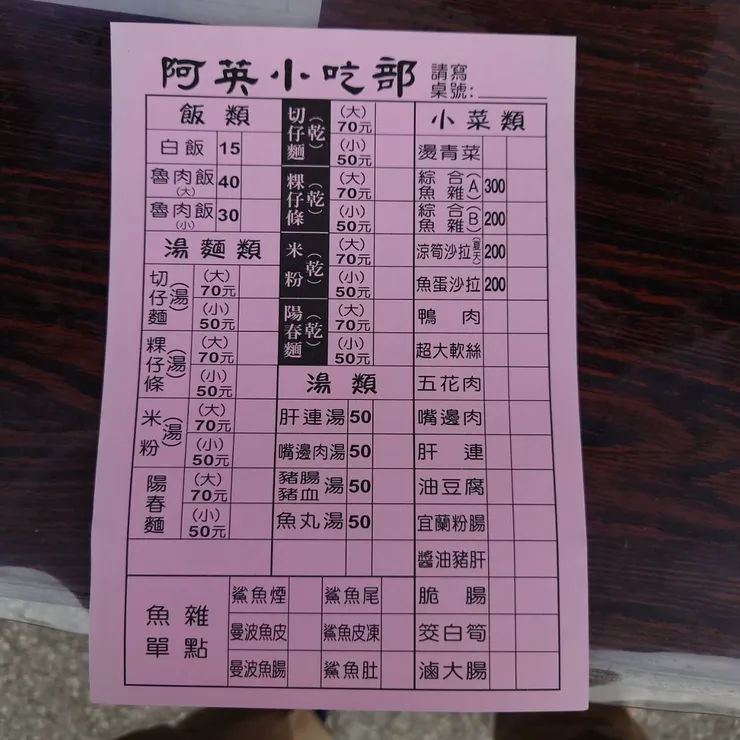 阿英小吃部
請寫
桌號:
飯類
白飯 15
魯肉飯(大) 40
魯肉飯(小) 30
湯麵類
切仔麵(湯) (大)70元
(小)50元
粿仔條(湯) (大)70元
(小)50元
米粉(湯) (大)70元
(小)50元
陽春麵 (大)70元
(小)50元
切仔麵(乾) (大)70元
(小)50元
粿仔條(乾) (大)70元
(小)50元
米粉(乾) (大)70元
(小)50元
陽春麵(乾) (大)70元
(小)50元
湯類
肝連湯 50
嘴邊肉湯 50
豬腸豬血湯 50
魚丸湯 50
小菜類
燙青菜
綜合魚雜(A) 300
綜合魚雜(B) 200
涼筍沙拉(夏天) 200
魚蛋沙拉 200
鴨肉
超大軟絲
五花肉
嘴邊肉
肝連
油豆腐
宜蘭粉腸
醬油豬肝
脆腸
筊白筍
滷大腸
魚雜單點
鯊魚煙
鯊魚尾
曼波魚皮
鯊魚皮凍
曼波魚腸
鯊魚肚